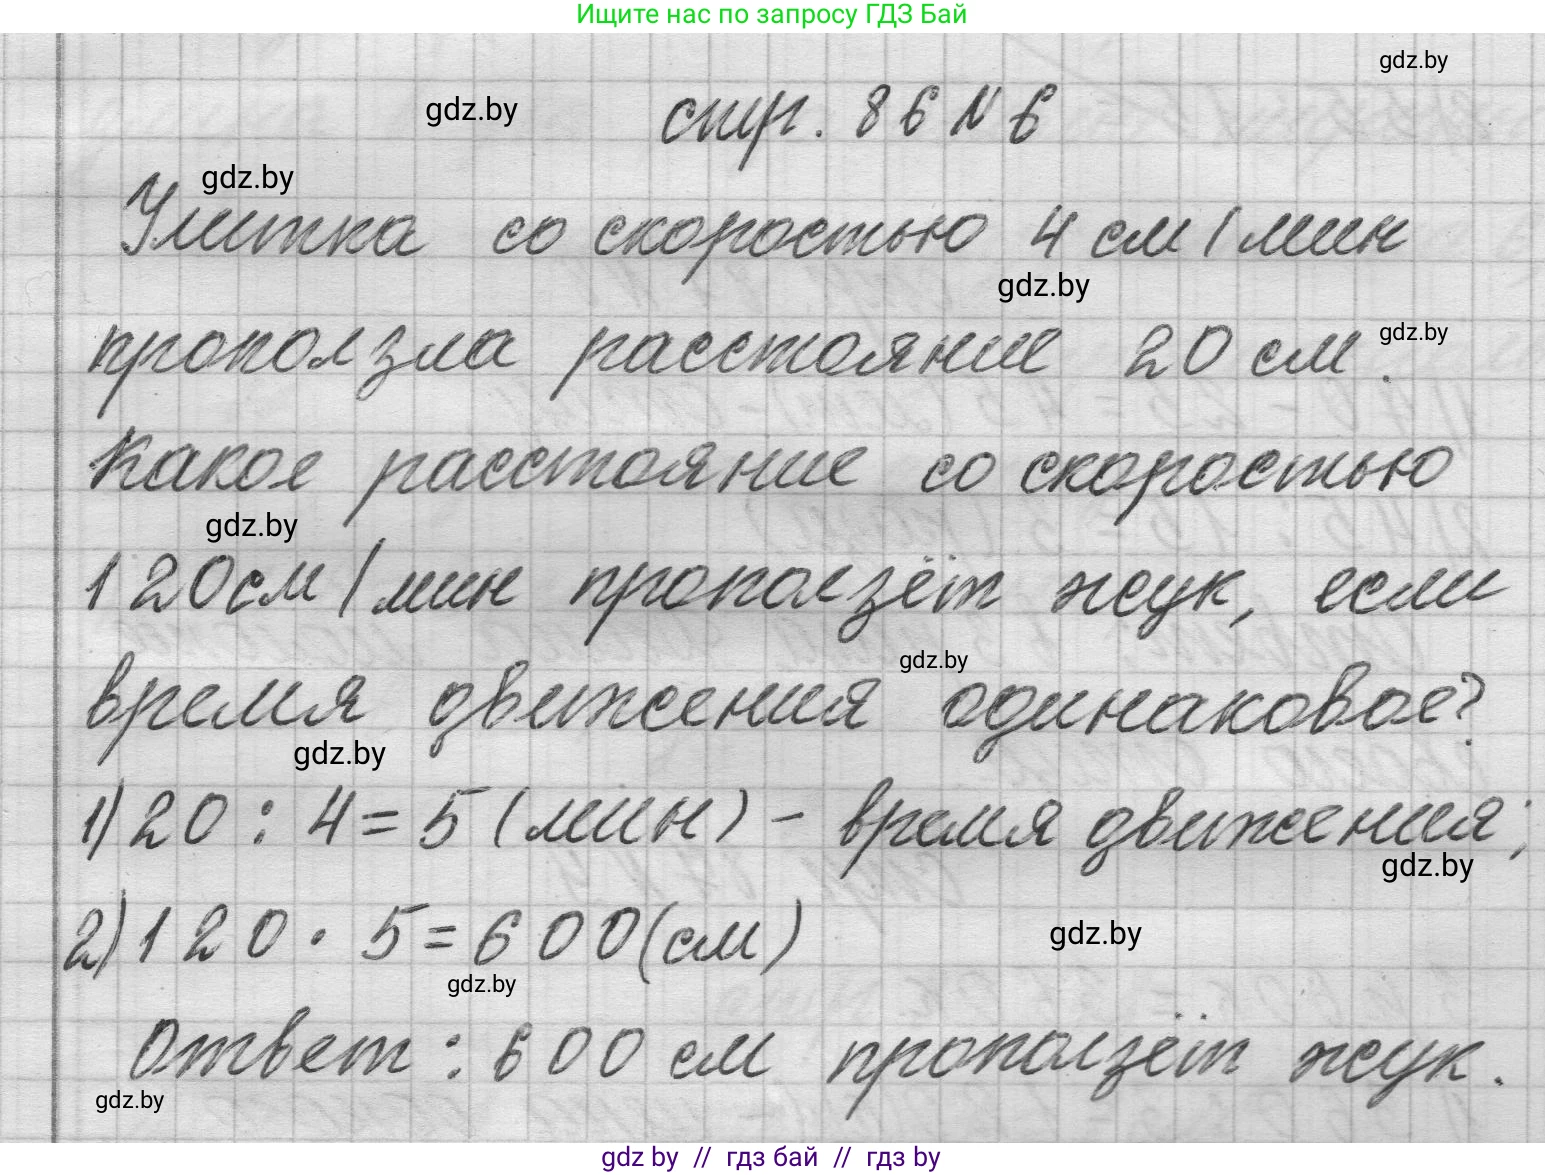 Ищите нас по запросу ГДЗ Бай
gdz.by
gdz.by
стр. 86 № 6
gdz.by
Улитка со скоростью 4 см/мин
gdz.by
проползла расстояние 20 см.
gdz.by
Какое расстояние со скоростью
gdz.by
120см/мин проползёт жук, если
gdz.by
время движения одинаковое?
gdz.by
1) 20 : 4 = 5 (мин) - время движения;
gdz.by
2) 120 · 5 = 600 (см)
gdz.by
gdz.by
Ответ : 600 см проползёт жук.
gdz.by
gdz by // гдз бай // гдз by